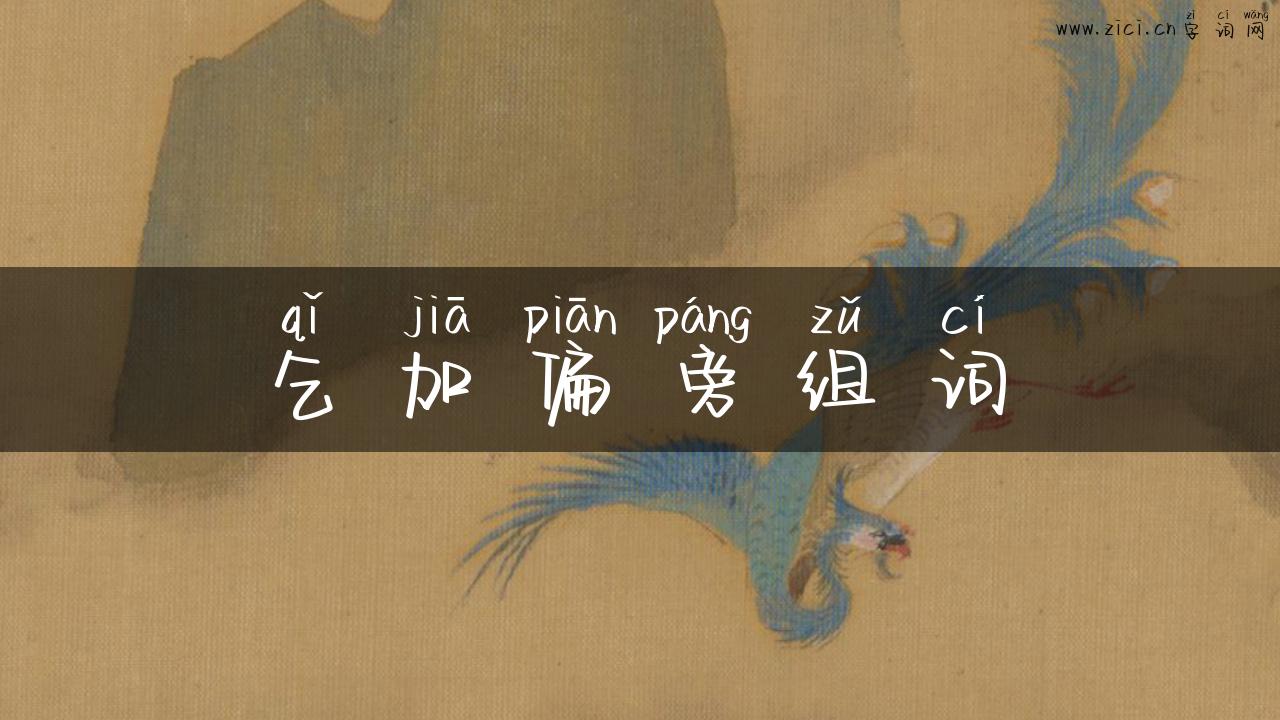 zì cí wǎng
www.zici.cn 字词网
qǐ jiā piān páng zǔ cí
乞加偏旁组词